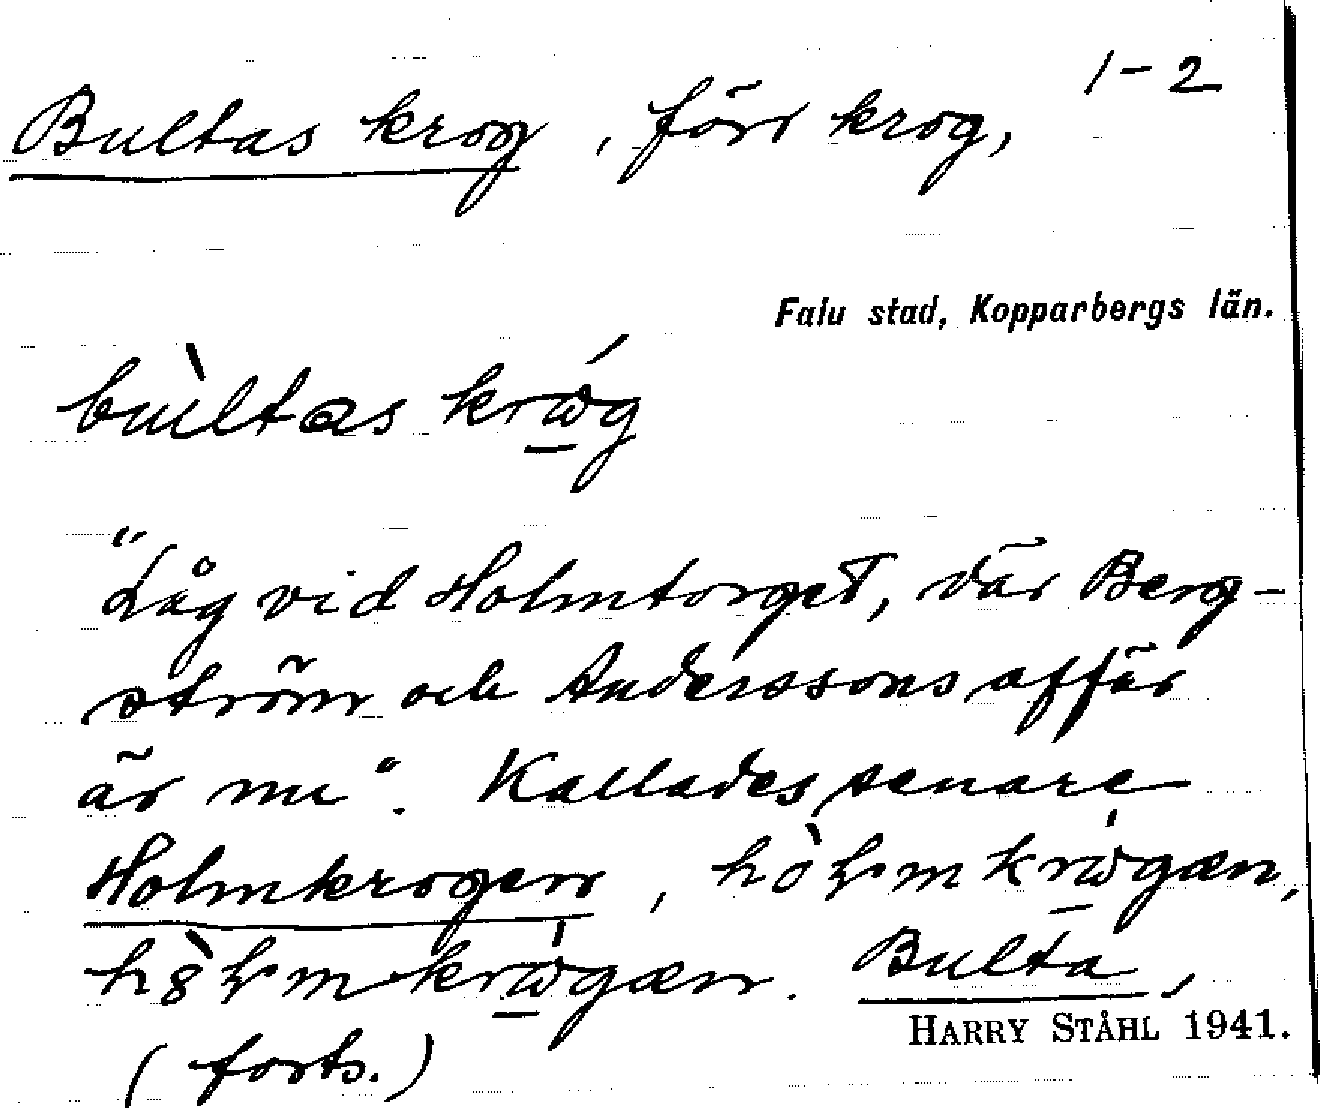 1-2
Bultas krog, förr krog,
Falu stad, Kopparbergs län.
bùltas krɷ́g
"Låg vid Holmtorget, där Berg-
ström och Anderssons affär
är nu". Kallades senare
Holmkrogen,
Bulta,
HARRY STÅHL 1941.
(forts.)